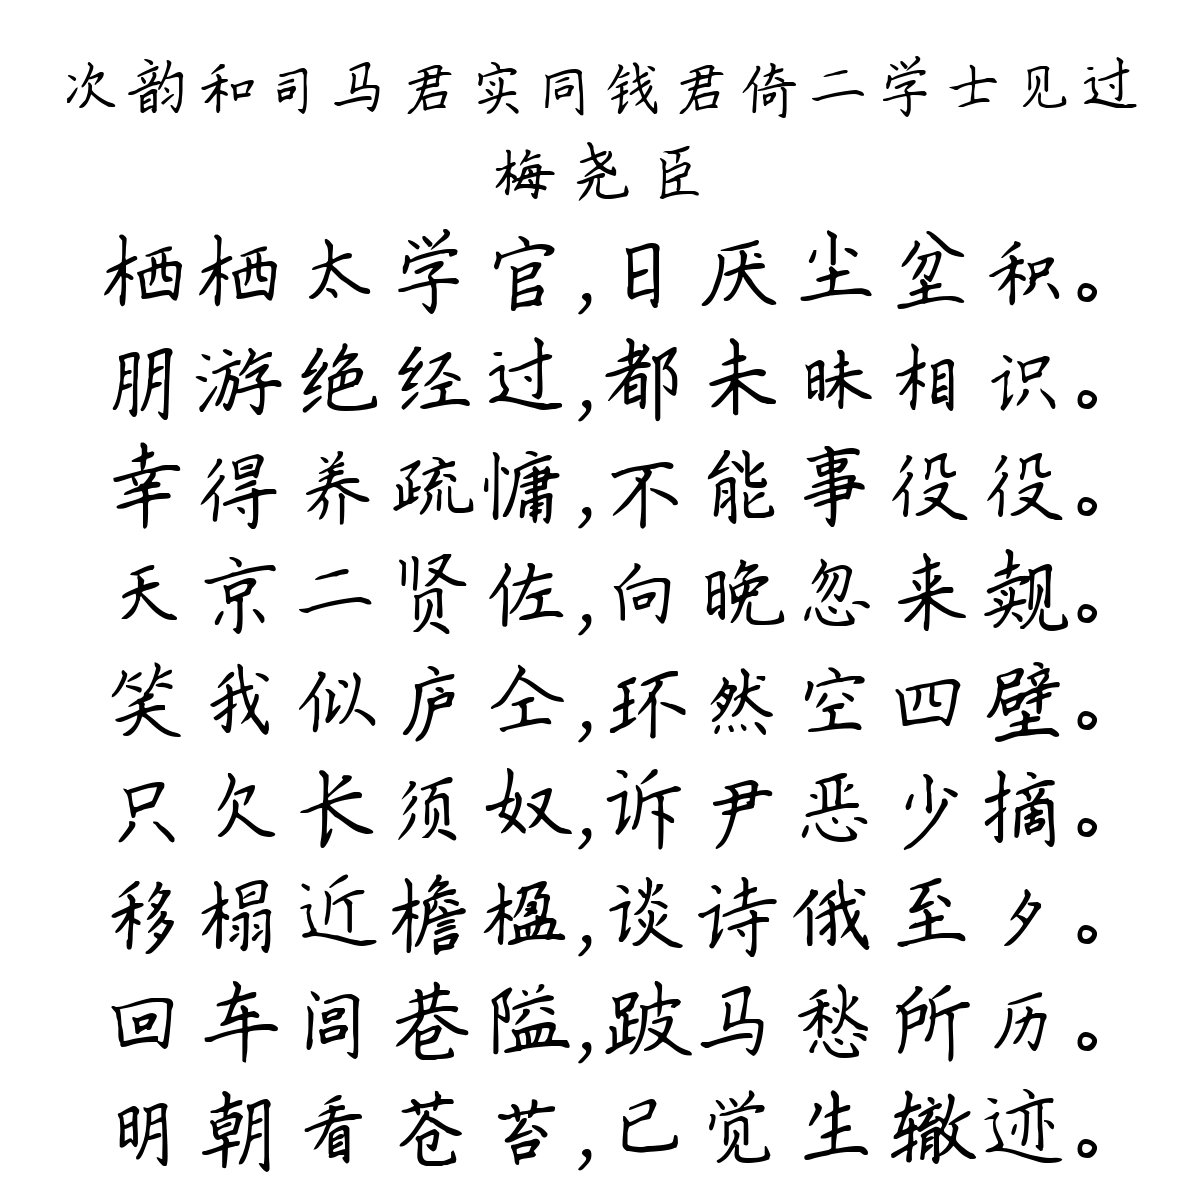 次韵和司马君实同钱君倚二学士见过
梅尧臣
栖栖太学官,日厌尘坌积。
朋游绝经过,都未昧相识。
幸得养疏慵,不能事役役。
天京二贤佐,向晚忽来觌。
笑我似庐仝,环然空四壁。
只欠长须奴,诉尹恶少摘。
移榻近檐楹,谈诗俄至夕。
回车闾巷隘,跛马愁所历。
明朝看苍苔,已觉生辙迹。